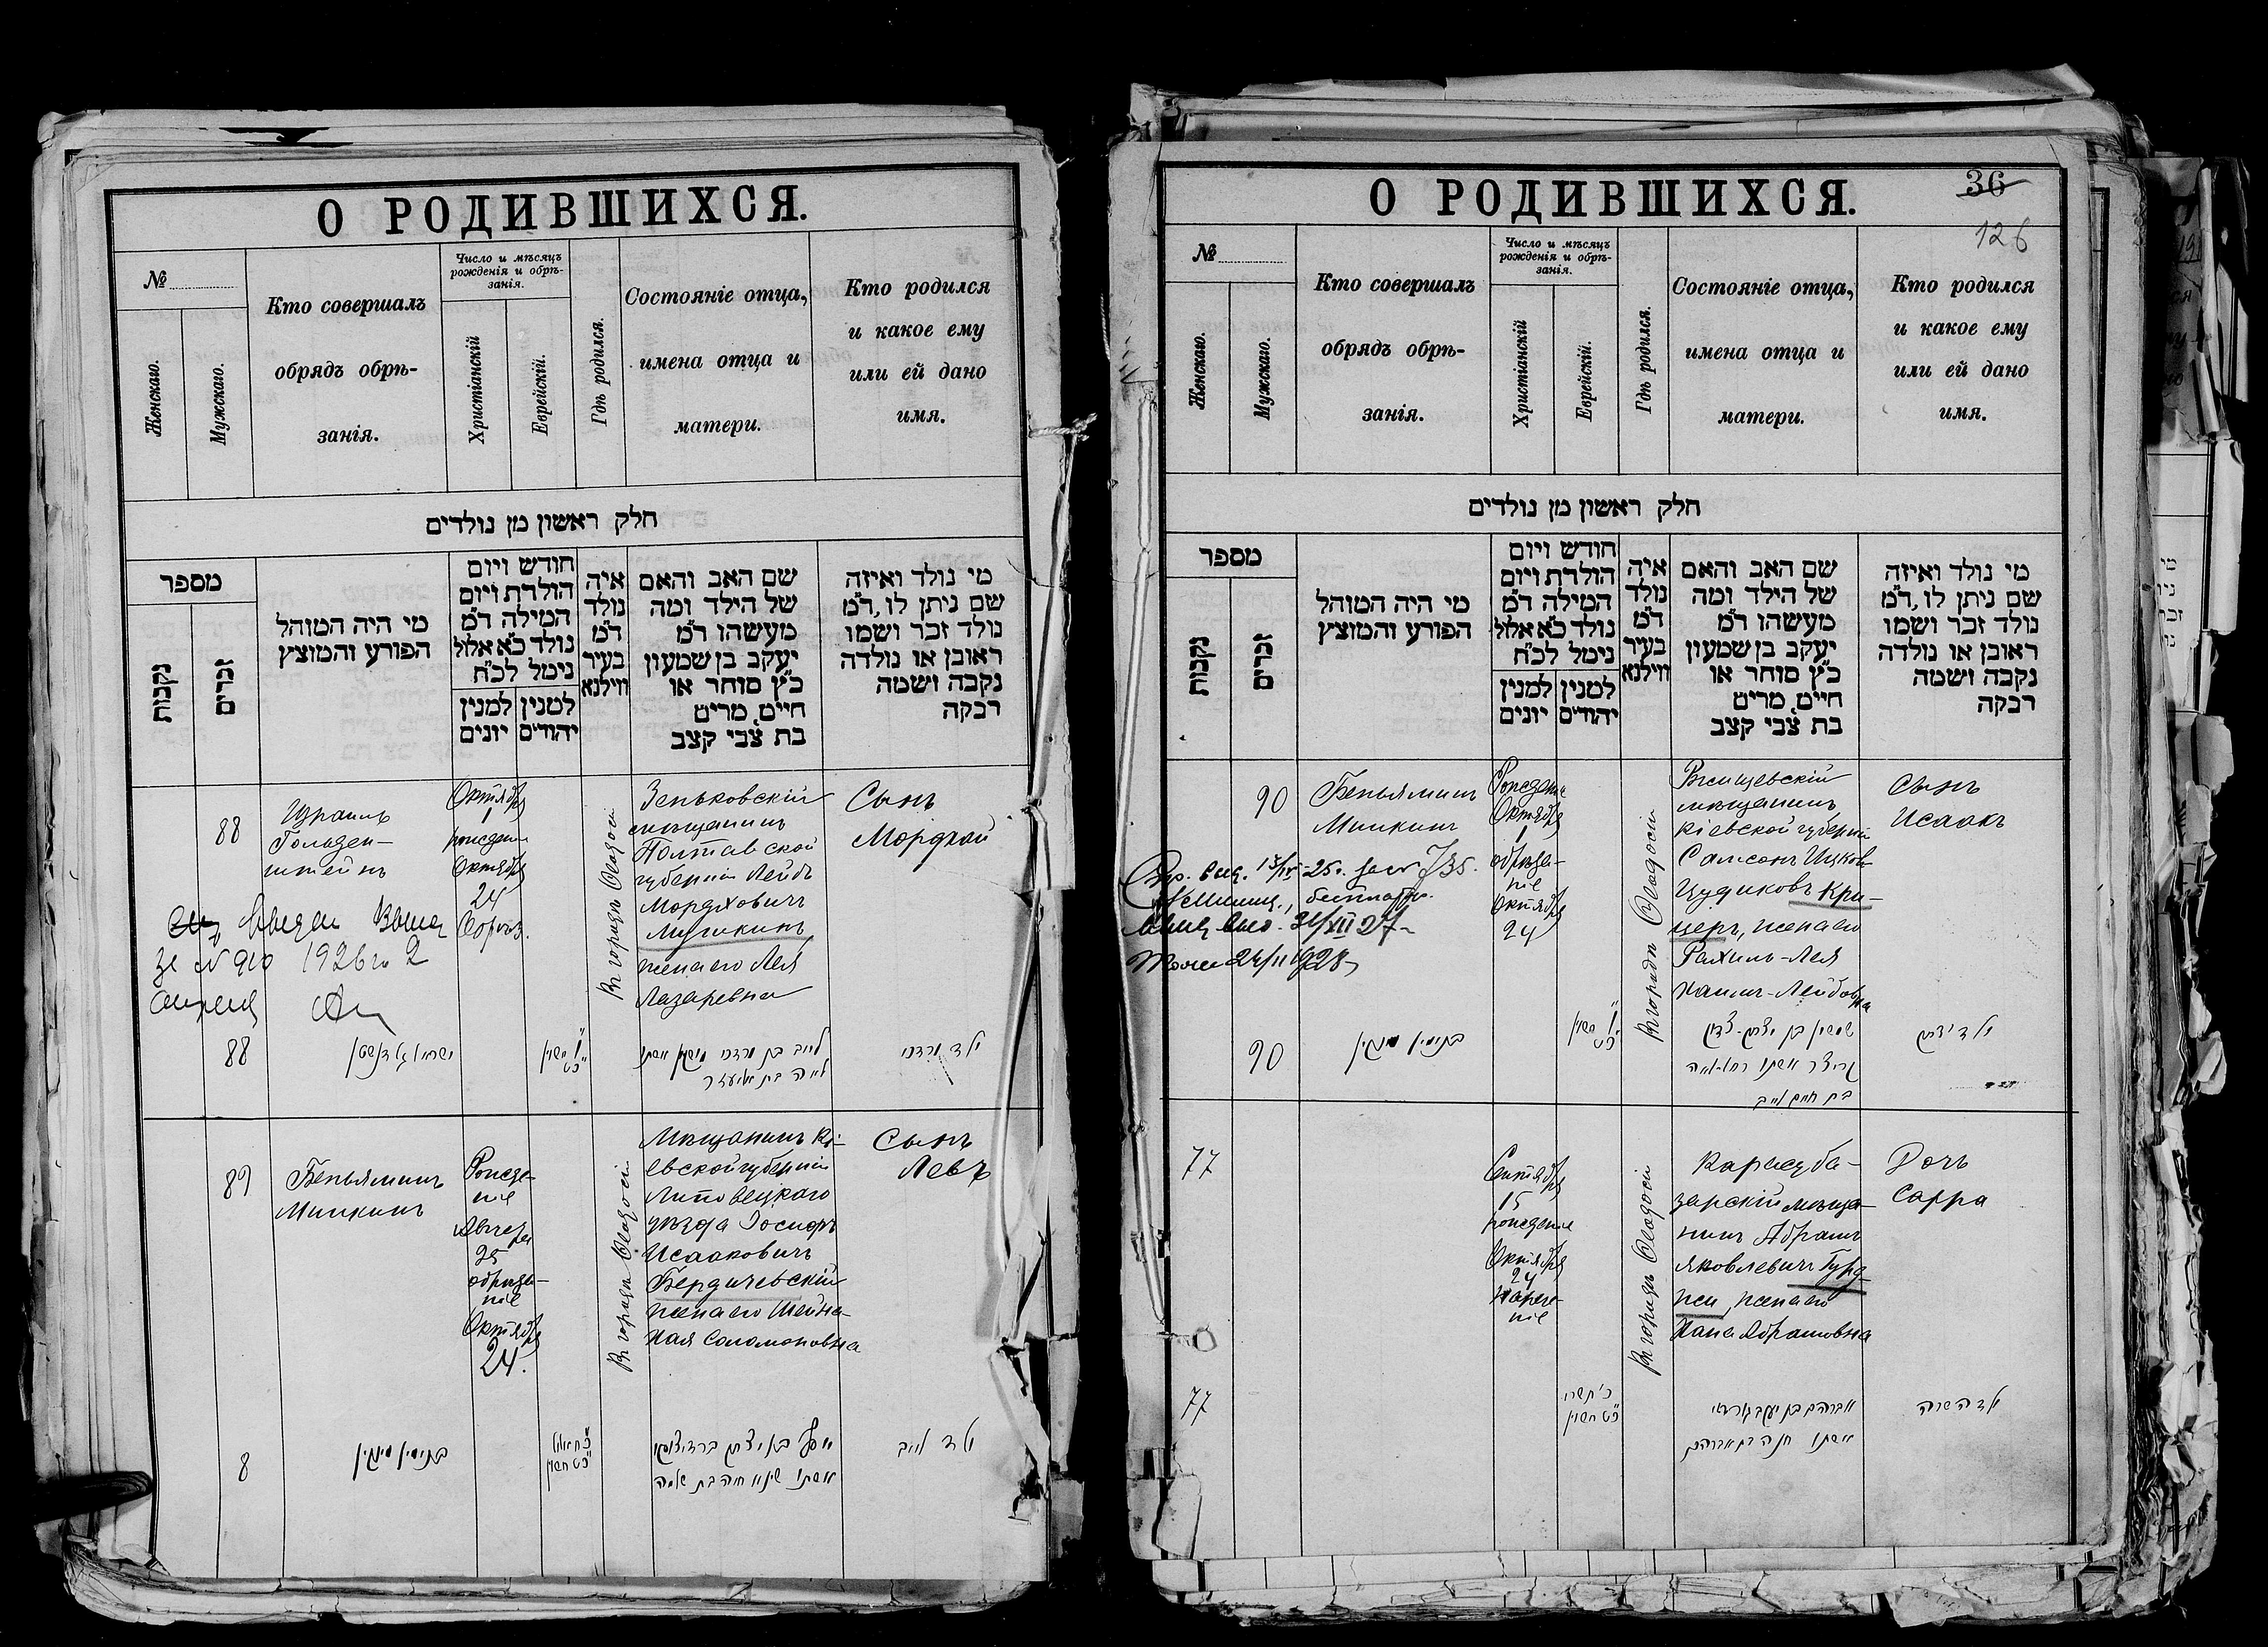 О РОДИВШИХСЯ.
№
Женскаго.
Мужскаго.
Кто совершалъ
обрядъ обрѣ-
занія.
Число и мѣсяцъ
рожденія и обрѣ-
занія.
Христіанскій
Еврейскій.
Гдѣ родился.
Состояніе отца,
имена отца и
матери.
Кто родился
и какое ему
или ей дано
имя.
חלק ראשון מן נולדים
מספר
נקבות
זכרים
מי היה המוהל
הפורע והמוצץ
חודש ויום
הולדת ויום
המילה ד״מ
נולד כ״א אלול
נימל לכ״ח
למנין יונים
למנין יהודים
איה
נולד
ד״מ
בעיר
ווילנא
שם האב והאם
של הילד ומה
מעשהו ד״מ
יעקב בן שמעון
כ״ץ סוחר או
חיים, מרים
בת צבי קצב
מי נולד ואיזה
שם ניתן לו, ד״מ
נולד זכר ושמו
ראובן או נולדה
נקבה ושמה
רבקה
88
Израиль
Гольден-
штейнъ
Октября
1
рожден
Октября
24
Въ городѣ Ѳеодосіи
Зеньковскій
мѣщанинъ
Полтавской
губерніи Лейбъ
Мордховичъ
Мушкинъ
жена его Лея
Лазаревна
Сынъ
Мордхай
1926 го 2
88
ילד מרדכי
89
Беньяминъ
Минкинъ
Рожде-
ніе
Августа
25
обрѣза-
ніе
Октября
24.
Въ городѣ Ѳеодосіи
Мѣщанинъ Кі-
евской губерніи
Липовецкаго
уѣзда Іосифъ
Исааковичъ
Бердичевскій
жена его Шейна-
Хая Соломоновна
Сынъ
Левъ
8
בנימין מינקין
ילד לייב
О РОДИВШИХСЯ.
36
126
№
Женскаго.
Мужскаго.
Кто совершалъ
обрядъ обрѣ-
занія.
Число и мѣсяцъ
рожденія и обрѣ-
занія.
Христіанскій
Еврейскій.
Гдѣ родился.
Состояніе отца,
имена отца и
матери.
Кто родился
и какое ему
или ей дано
имя.
חלק ראשון מן נולדים
מספר
נקבות
זכרים
מי היה המוהל
הפורע והמוצץ
חודש ויום
הולדת ויום
המילה ד״מ
נולד כ״א אלול
נימל לכ״ח
למנין יונים
למנין יהודים
איה
נולד
ד״מ
בעיר
ווילנא
שם האב והאם
של הילד ומה
מעשהו ד״מ
יעקב בן שמעון
כ״ץ סוחר או
חיים, מרים
בת צבי קצב
מי נולד ואיזה
שם ניתן לו, ד״מ
נולד זכר ושמו
ראובן או נולדה
נקבה ושמה
רבקה
90
Беньяминъ
Минкинъ
Рожденіе
Октября
1
обрѣза-
ніе
Октября
24
Въ городѣ Ѳеодосіи
Ржищевскій
мѣщанинъ
Кіевской губерніи
Самсонъ Ицков
Цудиковъ Кри-
церъ, жена его
Рахиль-Лея
Хаимъ-Лейбовна
Сынъ
Исаакъ
90
בנימין מינקין
ילד יצחק
77
Сентября
15
рожденіе
Октября
24
нарече-
ніе
Въ городѣ Ѳеодосіи
Карасуба-
зарскій мѣща-
нинъ Абрамъ
Яковлевичъ Гурд-
жи, жена его
Хана Абрамовна
Дочь
Сарра
77
ילדה שרה